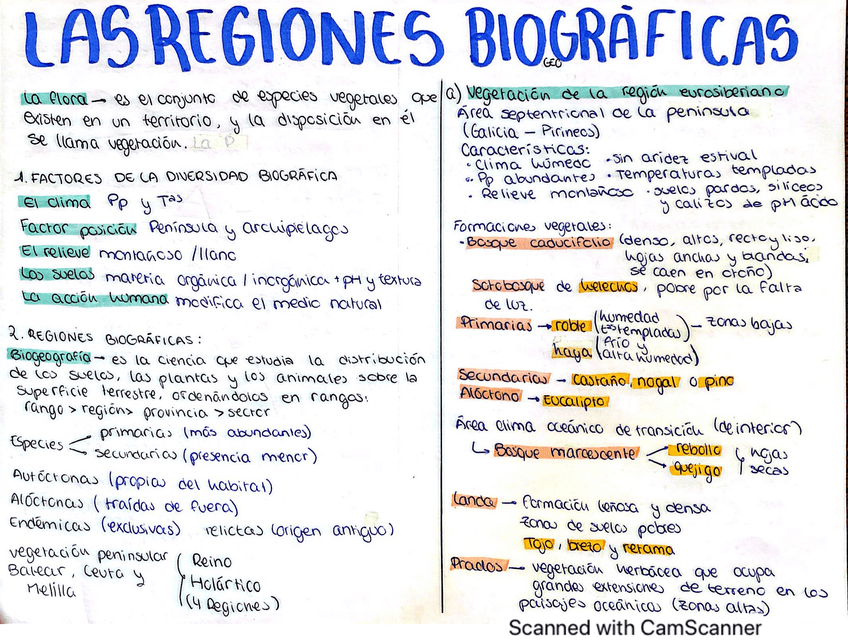 LAS REGIONES BIOGRÁFICAS
GEO
La flora → es el conjunto de especies vegetales que
existen en un territorio, y la disposición en él
se llama vegetación. La P
1. FACTORES DE LA DIVERSIDAD BIOGRÁFICA
El clima Pp y Tas
Factor posición Península y archipiélagos
El relieve montañoso / llano
Los suelos materia orgánica / inorgánica + pH y textura
La acción humana modifica el medio natural
2. REGIONES BIOGRÁFICAS:
Biogeografía → es la ciencia que estudia la distribución
de los suelos, las plantas y los animales sobre la
superficie terrestre, ordenándolos en rangos:
rango > región > provincia > sector
Especies
primarias (más abundantes)
secundarias (presencia menor)
Autóctonas (propias del habital)
Alóctonas (traídas de fuera)
Endémicas (exclusivas) relictas (origen antiguo)
vegetación peninsular
Balear, Ceuta y
Melilla
Reino
Holártico
(4 Regiones)
a) Vegetación de la región eurosiberiana
Área septentrional de la península
(Galicia – Pirineos)
Características:
• Clima húmedo • sin aridez estival
• Pp abundantes • Temperaturas templadas
• Relieve montañoso • suelos pardos, silíceos
y calizos de pH ácido
Formaciones vegetales:
• Bosque caducifolio (denso, altos, recto y liso,
hojas anchas y blandas,
se caen en otoño)
Sotobosque de helechos, pobre por la falta
de luz.
Primarias → roble (humedad
tas templadas) – zonas bajas
haya (frío y
alta humedad)
Secundarias → castaño, nogal o pino
Alóctono → Eucalipto
Área clima oceánico de transición (de interior)
↳ Bosque marcescente
rebollo
quejigo
hojas
secas
Landa → formación leñosa y densa
zonas de suelos pobres
Tojo, brezo y retama
Prados → vegetación herbácea que ocupa
grandes extensiones de terreno en los
paisajes oceánicos (zonas altas)
Scanned with CamScanner